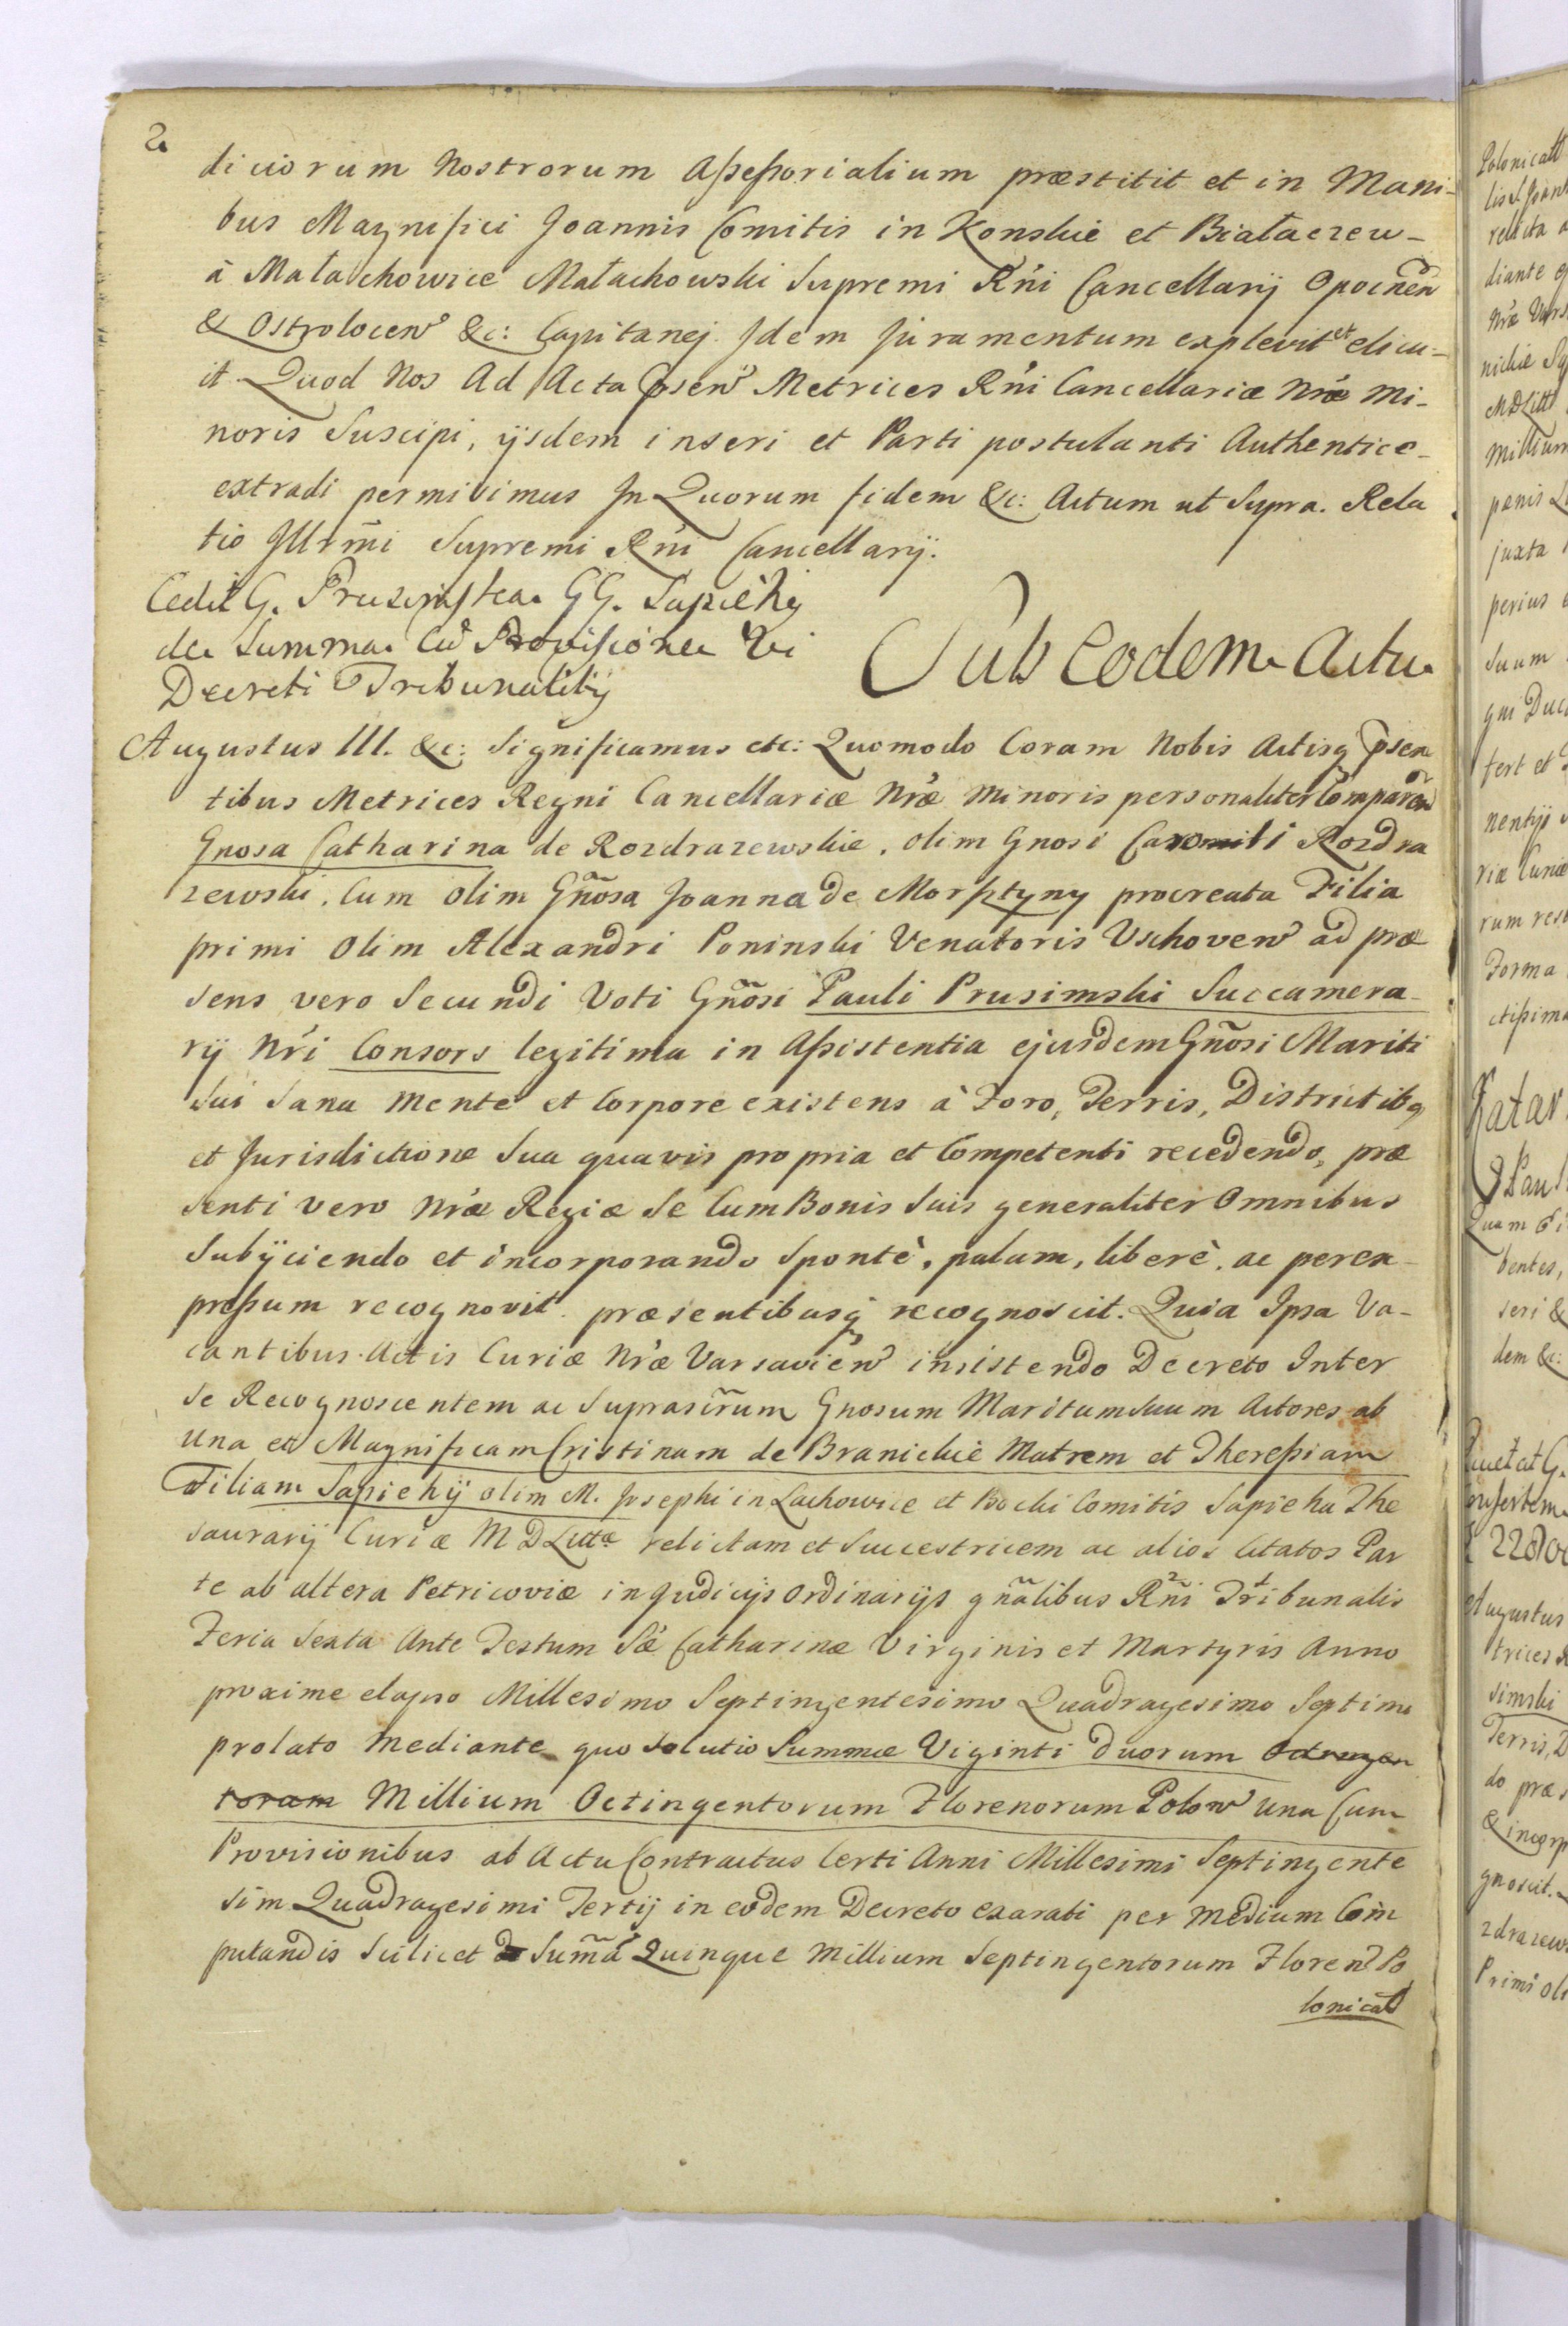 2
diciorum Nostrorum Assessorialium præstitit et in Mani-
bus Magnifici Joannis Comitis in Konskie et Białaczew-
à Małachowice Małachowski Supremi Rni Cancellarij Opocnen
& Ostrolocen &c: Capitanej Idem Juramentum explevit et elicu-
it. Quod Nos Ad Acta Psen Metrices Rni Cancellariæ Nræ Mi-
noris Suscipi, ijsdem inseri et Parti postulanti Authentice-
extradi permisimus In Quorum fidem &c: Actum ut Supra. Rela
tio Illrmi Supremi Rni Cancellarij.
Cedit G. Prusimska GG. Sapiehij
de Summa Cu Provisione Vi
Decreti Tribunalitij
Sub Eodem Actu
Augustus III. &c: Significamus etc: Quomodo Coram Nobis Actisq Psen
tibus Metrices Regni Cancellariæ Nræ Minoris personaliter Comparen
Gnosa Catharina de Rozdrazewskie, olim Gnosi Rozdra
zewski, Cum olim Gnosa Joanna de Morsztyny procreata Filia
primi olim Alexandri Poninski Venatoris Vschoven ad præ
sens vero Secundi Voti Gnosi Pauli Prusimski Succamera-
rij Nri Consors legitima in Assistentia ejusdem Gnosi Mariti
Sui Sana Mente et Corpore existens à Foro, Terris, Districtibq
et Jurisdictione Sua quavis propria et Competenti recedendo, præ
senti vero Nræ Regiæ Se Cum Bonis Suis generaliter Omnibus
Subijciendo et incorporando Spontè, palam, liberè, ac perex-
pressum recognovit præsentibusq recognoscit. Quia Ipsa Va-
cantibus Actis Curiæ Nræ Varsavien insistendo Decreto Inter
Se Recognoscentem ac Suprascrum Gnosum Maritum Suum Actores ab
Una et Magnificam Cristinam de Branickie Matrem et Theressiam
Filiam Sapiehij olim M. Josephi in Lachowice et Bocki Comitis Sapieha The
saurarij Curiæ M D Littæ relictam et Successtricem ac alios Citatos Par
te ab altera Petricoviæ in Judicijs Ordinarijs gnalibus Rni Tribunalis
Feria Sexta Ante Festum Sæ Catharinæ Virginis et Martyris Anno
proxime elapso Millesimo Septingentesimo Quadragesimo Septimo
prolato Mediante quo Solutio Summæ Viginti duorum Octingen
torum Millium Octingentorum Florenorum Polon una Cum
Provisionibus ab Actu Contractus Certi Anni Millesimi Septingente
sim Quadragesimi Tertij in eodem Decreto exarati per Medium Com
putandis Scilicet Suma Quinque Millium Septingentorum Floren Po
lonical